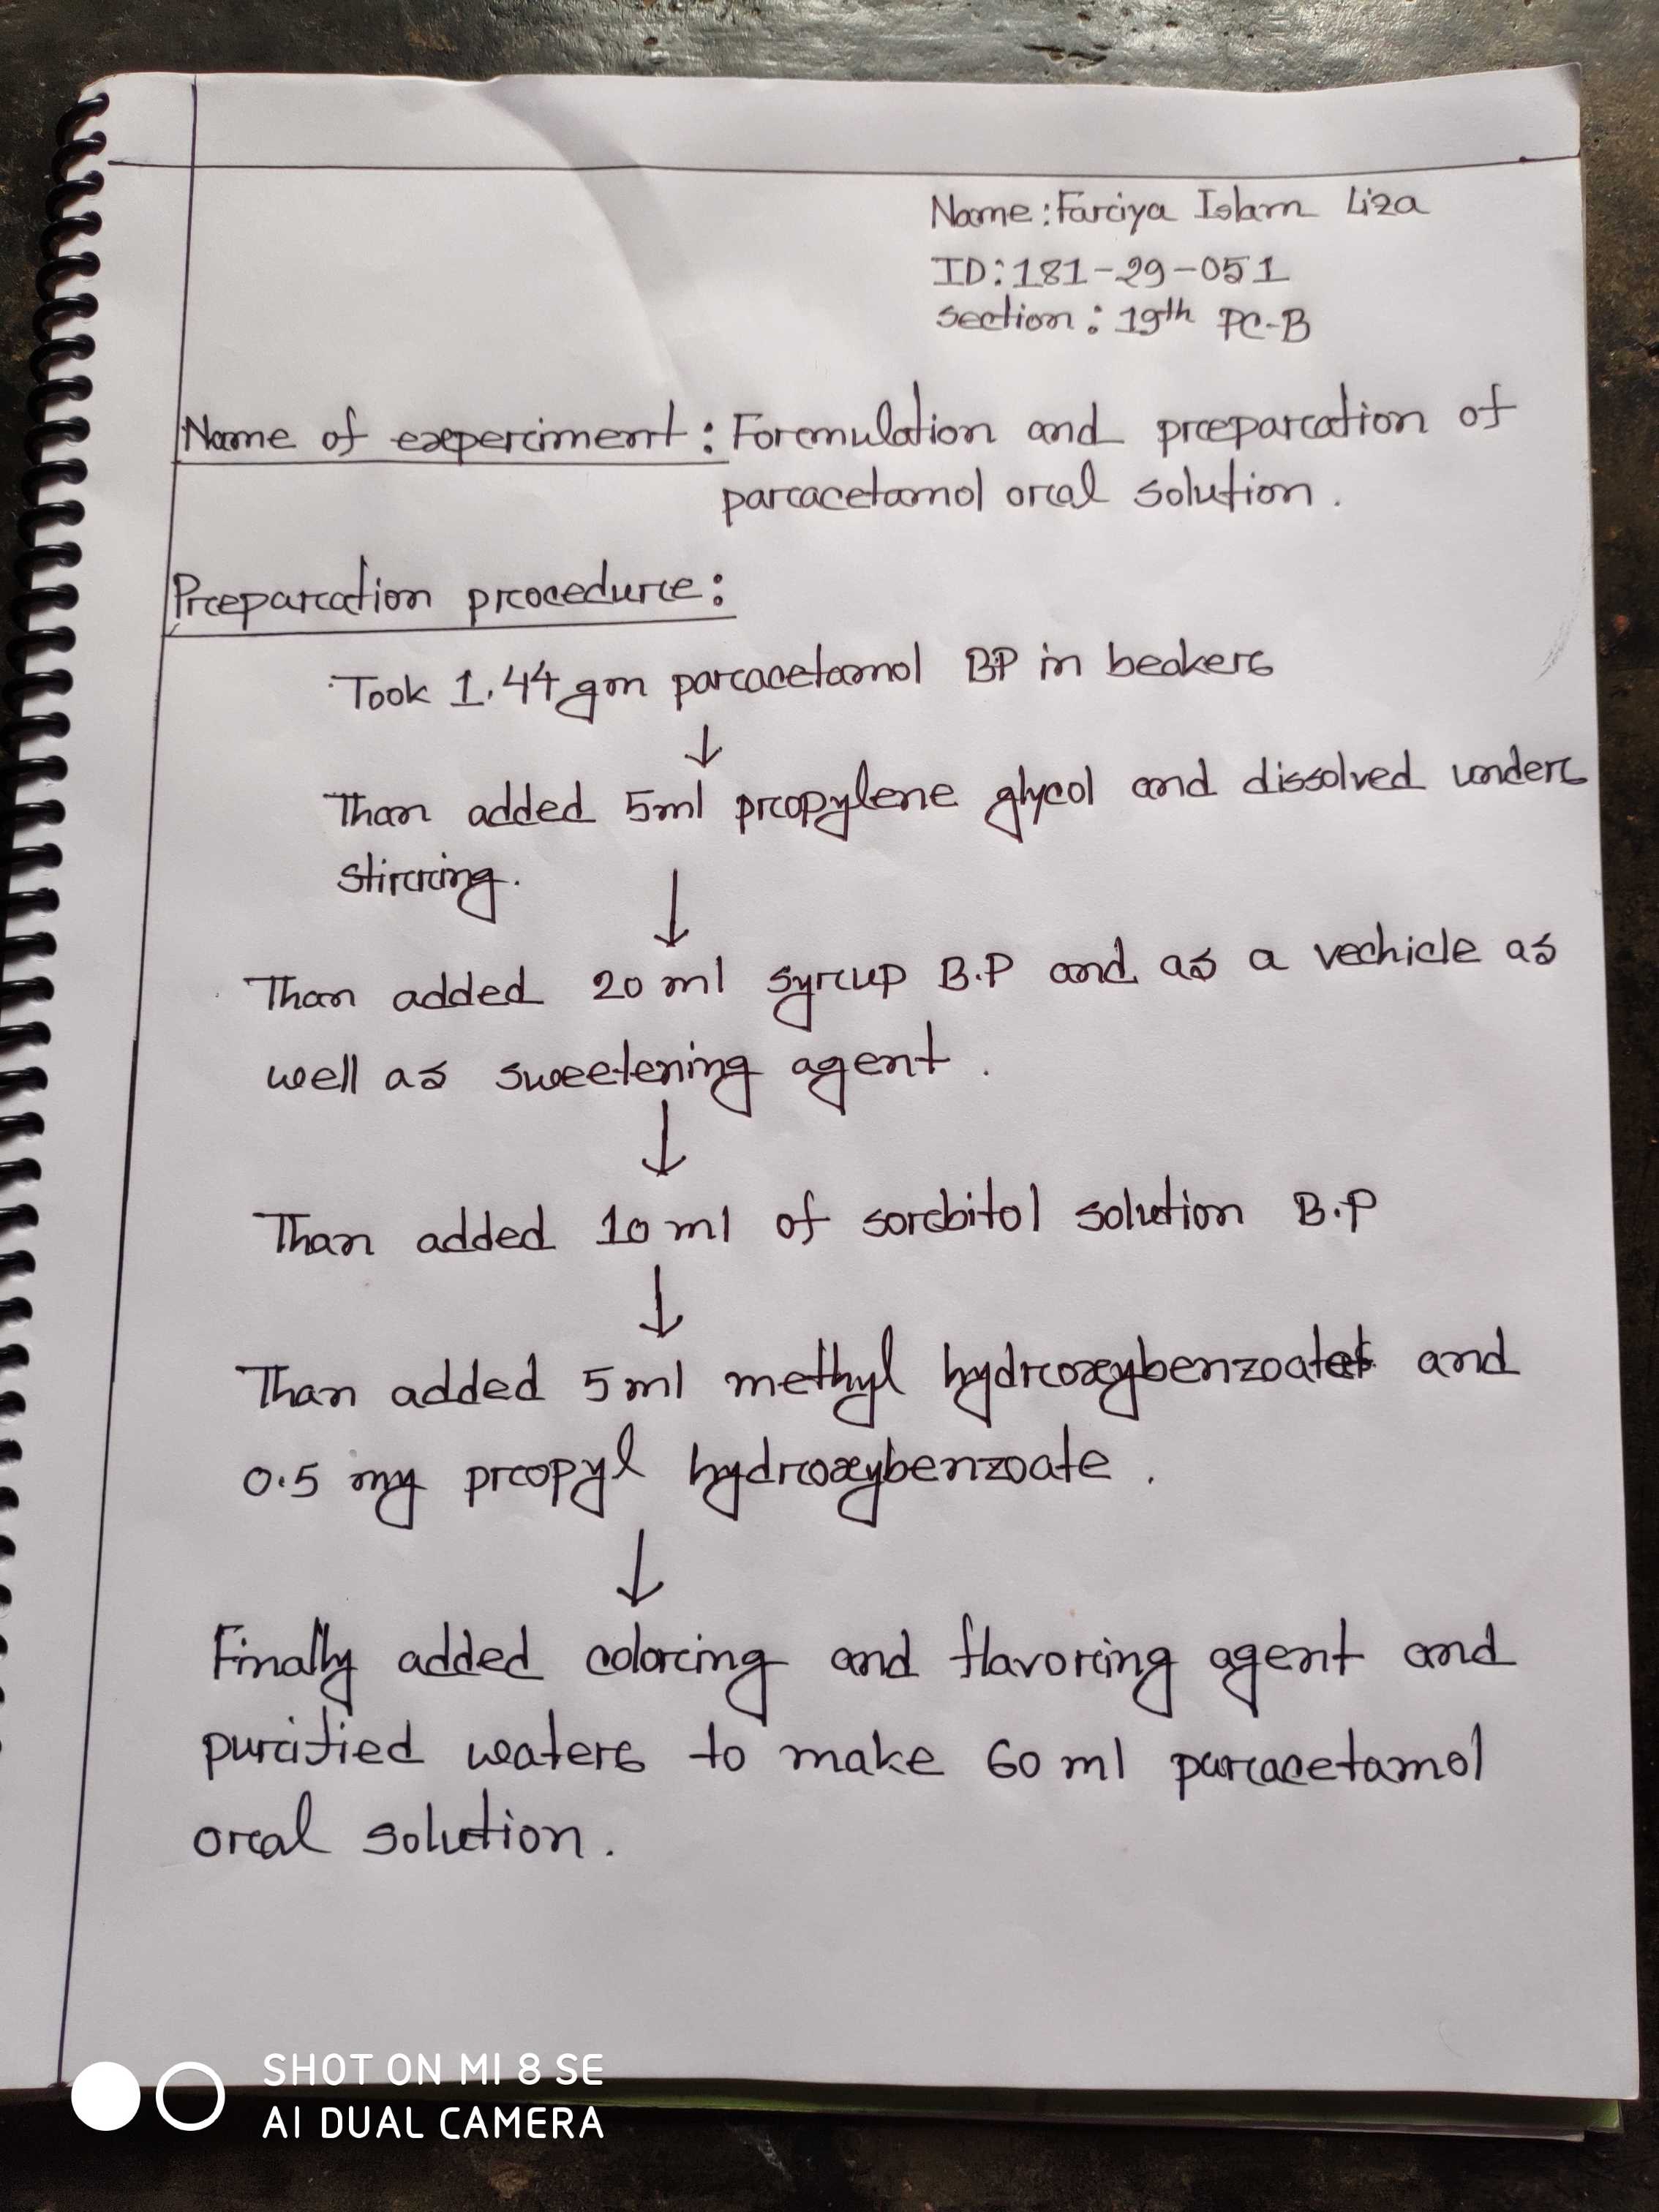 Name: Fariya Islam Liza
ID: 181-29-051
Section: 19th PC-B
Name of experiment: Formulation and preparation of
paracetamol oral solution.
Preparation procedure:
Took 1.44 gm paracetamol BP in beaker
↓
Than added 5ml propylene glycol and dissolved under
stirring.
↓
Than added 20 ml syrup B.P and as a vechicle as
well as sweetening agent.
↓
Than added 10 ml of sorbitol solution B.P
↓
Than added 5ml methyl hydroxybenzoate and
0.5 mg propyl hydroxybenzoate.
↓
Finally added coloring and flavoring agent and
purified water to make 60 ml paracetamol
oral solution.
SHOT ON MI 8 SE
AI DUAL CAMERA